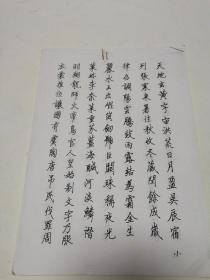 天地玄黃宇宙洪荒日月盈昃辰宿
列張寒来暑往秋收冬藏閏餘成歲
律吕調陽雲騰致雨露結為霜金生
麗水玉出崑岡劍號巨闕珠稱夜光
菓珍李柰菜重芥薑海鹹河淡鱗潛
羽翔龍師火帝鳥官人皇始制文字乃服
衣裳推位讓國有虞陶唐吊民伐罪周
小